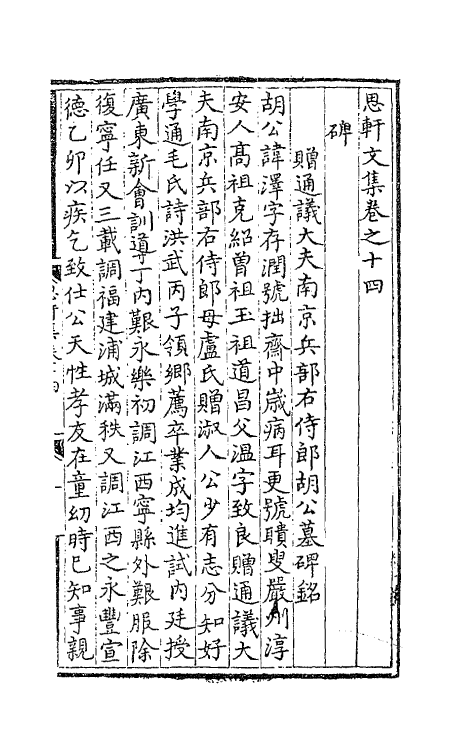 思軒文集卷之十四
碑
贈通議大夫南京兵部右侍郎胡公墓碑銘
胡公諱澤字存潤號拙齋中歲病耳更號聵叟嚴州淳
安人髙祖克紹曾祖玉祖道昌父溫字致良贈通議大
夫南京兵部右侍郎母盧氏贈淑人公少有志分知好
學通毛氏詩洪武丙子領鄉薦卒業成均進試內廷授
廣東新會訓導丁內艱永樂初調江西寧縣外艱服除
復寧任又三載調福建浦城滿秩又調江西之永豐宣
德乙卯以疾乞致仕公天性孝友在童幼時已知事親